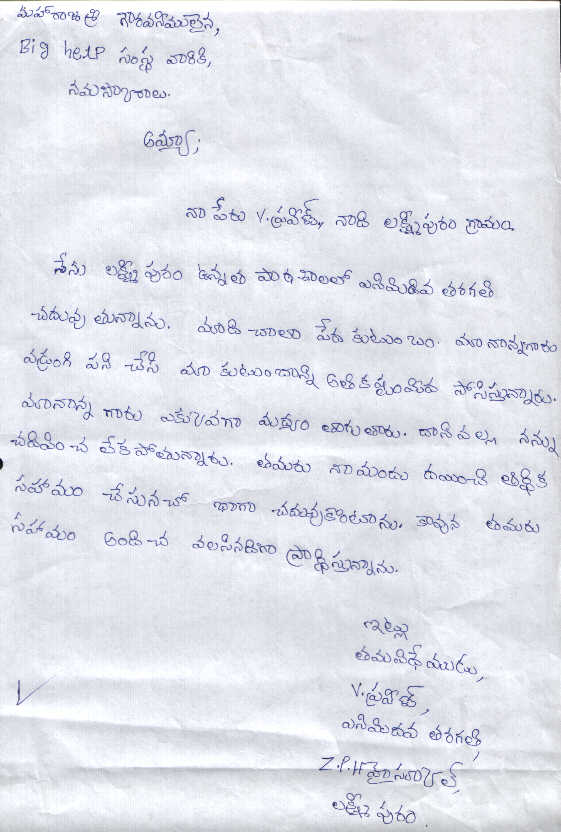 మహారాజశ్రీ గౌరవనీములైన,
Big help సంస్థ వారికి,
నమస్కారాలు.
అమ్మా;
నా పేరు V.ప్రవీణ్, నాది లక్ష్మీపురం గ్రామం.
నేను లక్ష్మీపురం ఉన్నత పాఠశాలలో ఎనిమిదివ తరగతి
చదువు తున్నాను. మాది చాలా పేద కుటుంబం. మా నాన్నగారు
వడ్రంగి పని చేసి మా కుటుంబాన్ని అతికష్టంమీద పోసిస్తున్నారు.
మానాన్న గారు ఎకువగా మద్యం తాగుతారు. దానివల్ల నన్ను
చదివించ లేకపోతున్నారు. తమరు నామందు దయించి ఆర్థిక
సహామం చేసునచో బాగా చదువుకుంటాను. కావున తమరు
సహామం అందించ వలసినదిగా ప్రార్థిస్తున్నాను.
ఇట్లు
తమవిధేముడు,
V.ప్రవీణ్,
ఎనిమిదవ తరగతి,
Z.P.H హైస్కూల్,
లక్ష్మీపురం.